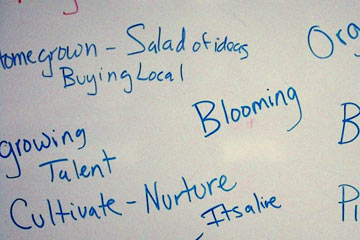 Homegrown - Salad of ideas
Buying Local
Blooming
growing
Talent
Cultivate - Nurture
Itsalive